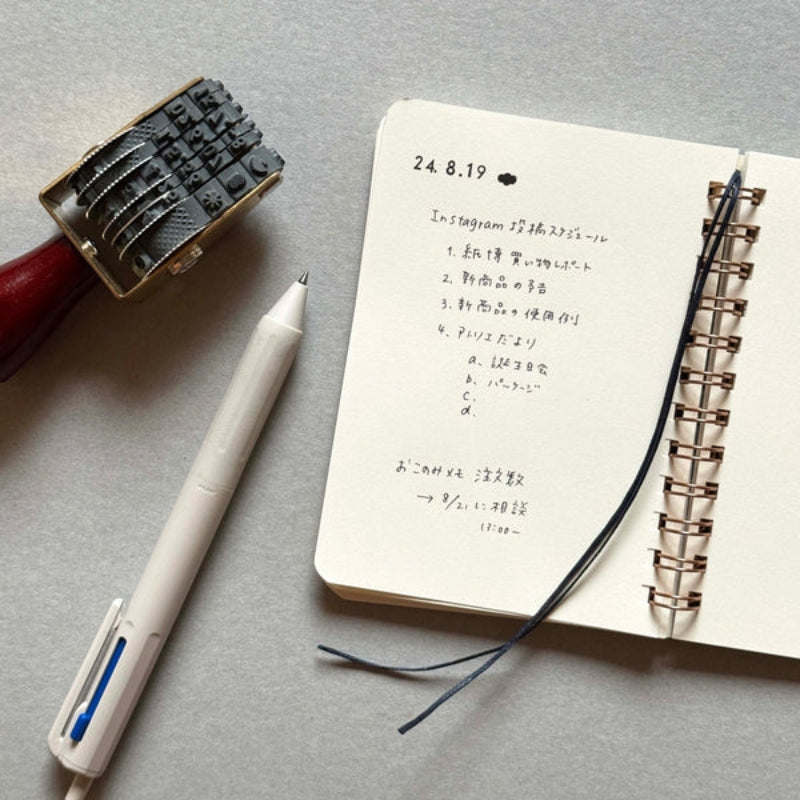 24.8.19
Instagram 投稿スケジュール
1. 紙博 買い物レポート
2. 新商品の予告
3. 新商品の使用例
4. アトリエだより
a. 誕生日会
b. パッケージ
c.
d.
おこのみメモ 注文数
→ 8/21 に相談
13:00~